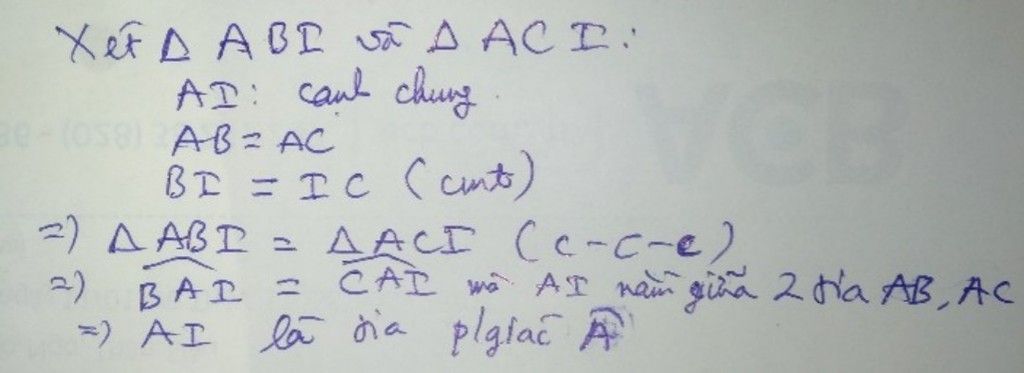 Xét Δ ABI và Δ ACI:
AI: cạnh chung.
AB = AC
BI = IC (cmt)
=) Δ ABI = Δ ACI (c-c-c)
=) \widehat{BAI} = \widehat{CAI} mà AI nằm giữa 2 tia AB, AC
=) AI là tia p/giác Â